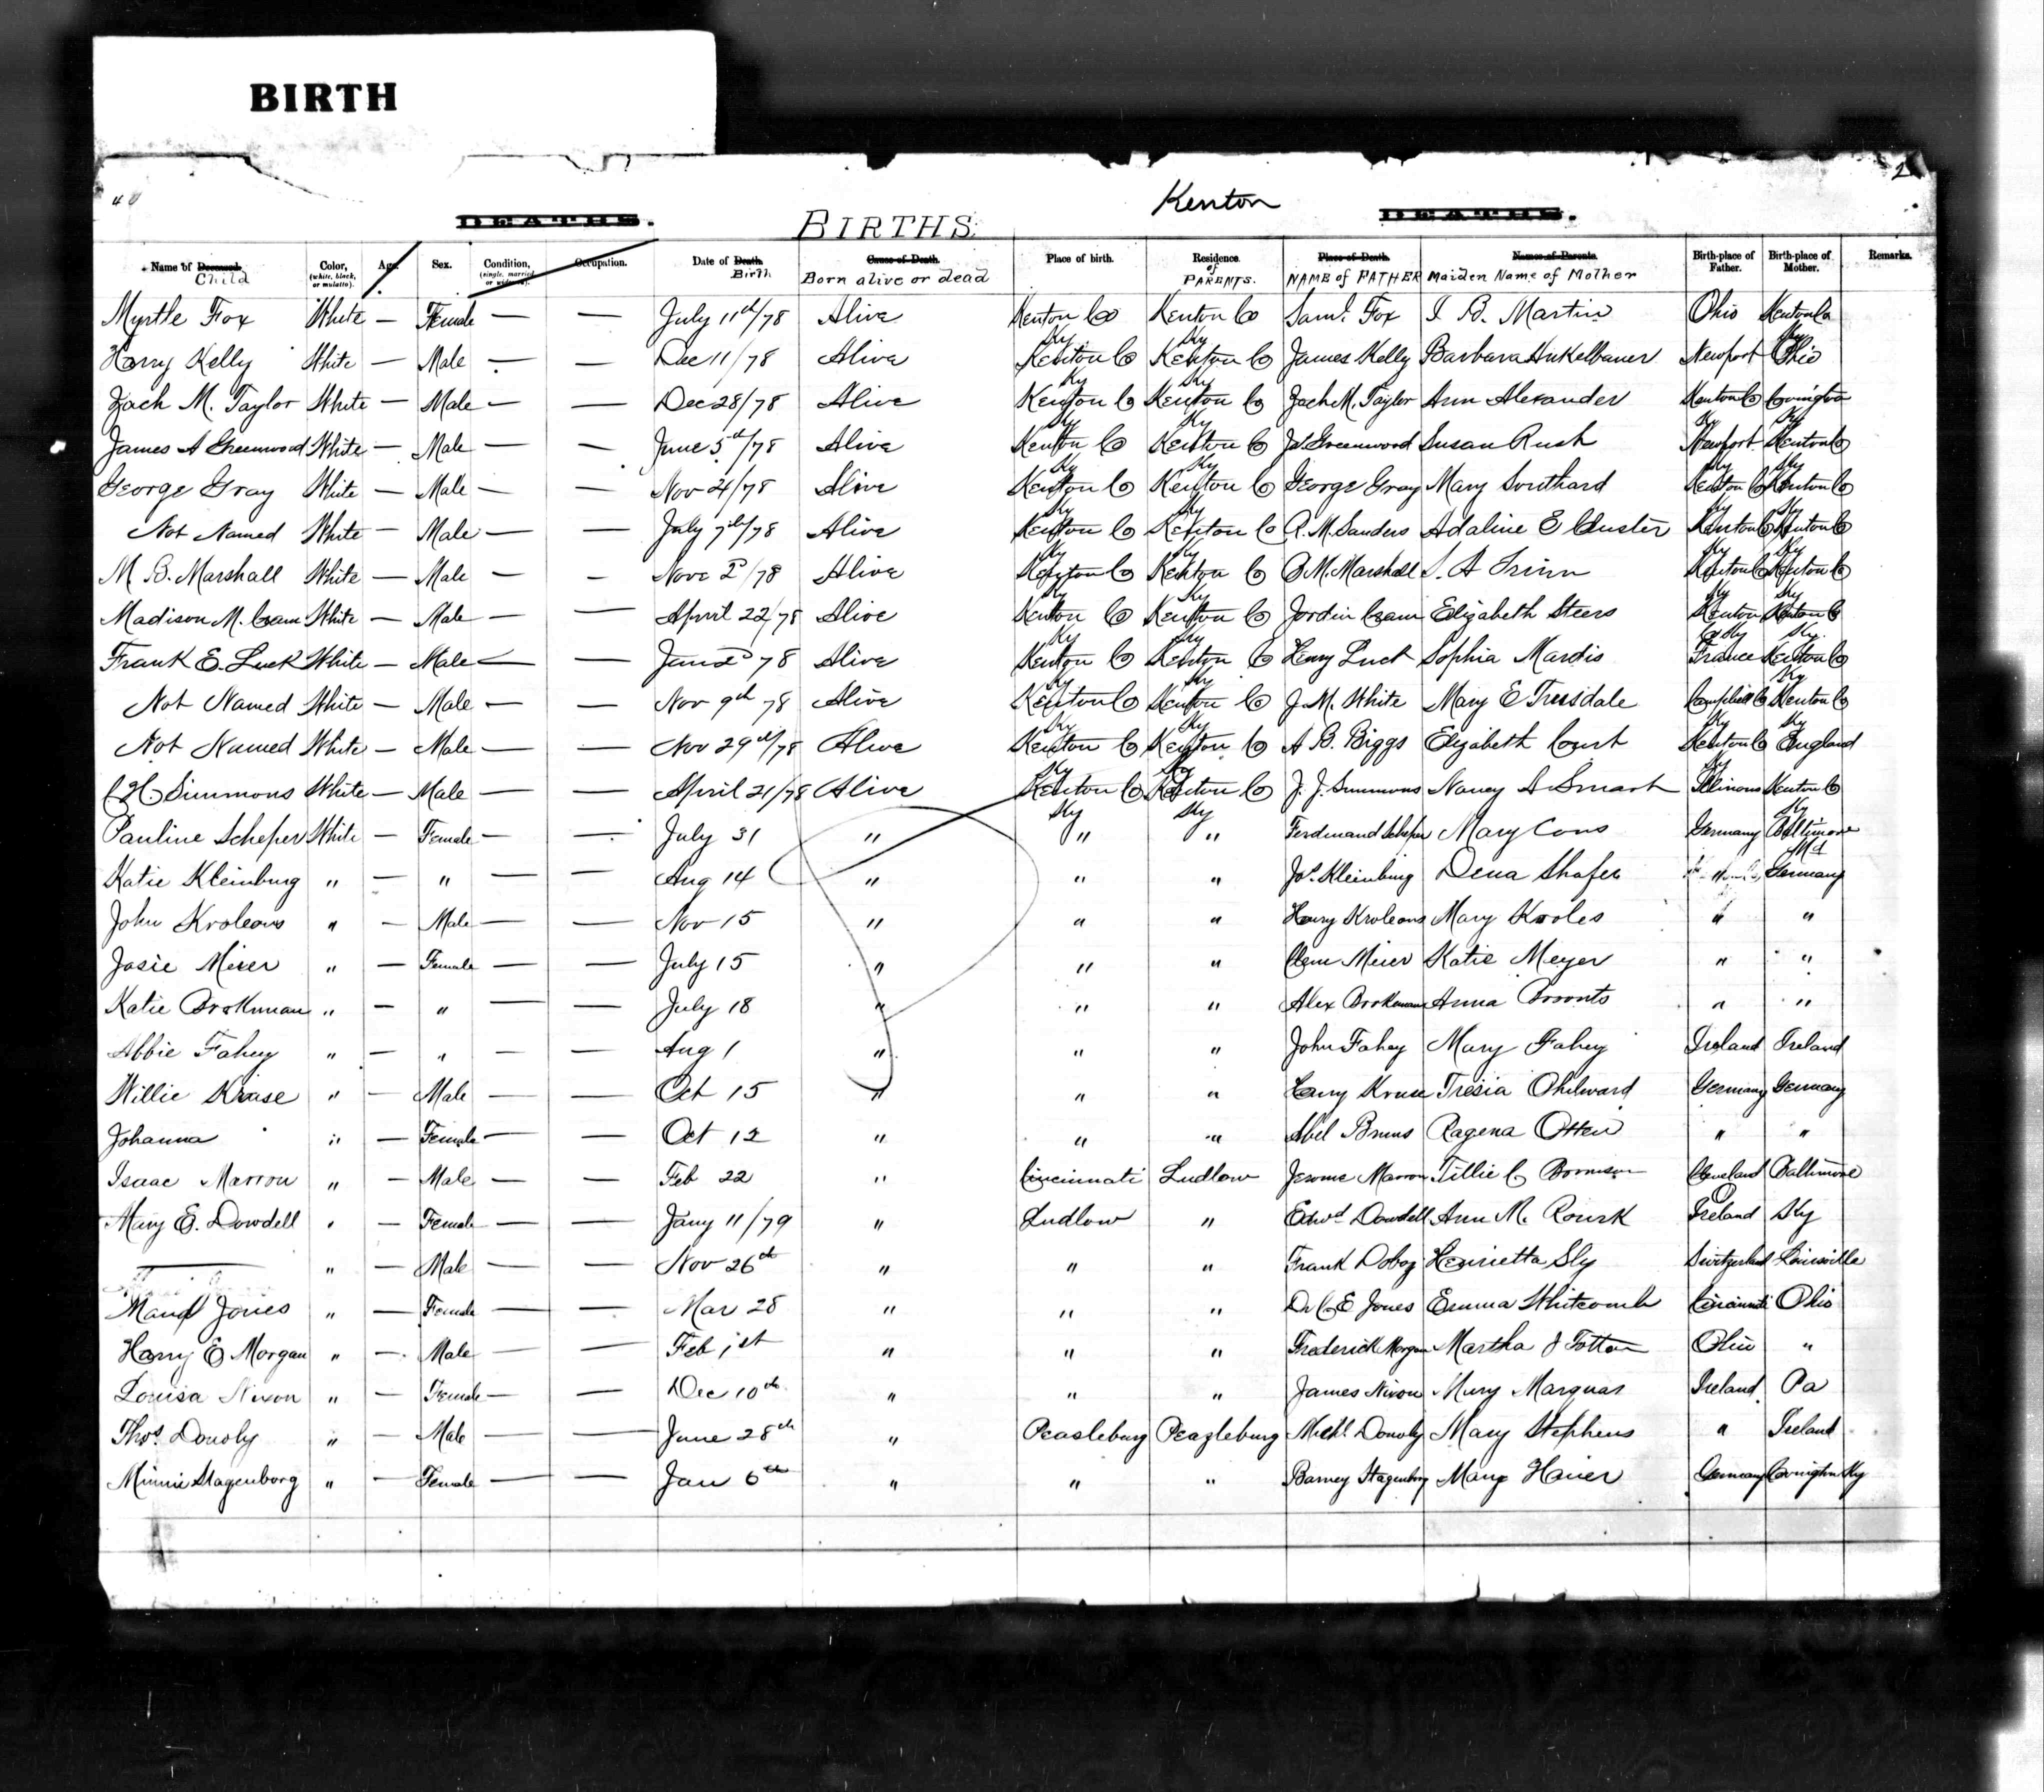 BIRTH
2
Kenton
DEATHS. BIRTHS. DEATHS.
Name of Deceased. Child Color, (white, black, or mulatto). Age. Sex. Condition, (single, married or widowed). Occupation. Date of Death. Birth Cause of Death. Born alive or dead Place of birth. Residence. of PARENTS. Place of Death. NAME of FATHER Names of Parents. Maiden Name of Mother Birth-place of Father. Birth-place of Mother. Remarks.
Myrtle Fox White — Female — — July 11th/78 Alive Kenton Co Ky Kenton Co Ky Saml. Fox I B. Martin Ohio Kenton Co Ky
Harry Kelly White — Male — — Dec 11/78 Alive Kenton Co Ky Kenton Co Ky James Kelly Barbara Newport Ohio
Zach M. Taylor White — Male — — Dec 28/78 Alive Kenton Co Ky Kenton Co Ky Zach M. Taylor Ann Alexander Kenton Co Ky Covington Ky
James A Greenwood White — Male — — June 5th/78 Alive Kenton Co Ky Kenton Co Ky Greenwood Susan Rush Newport Ky Kenton Co Ky
George Gray White — Male — — Nov 21/78 Alive Kenton Co Ky Kenton Co Ky George Gray Mary Southard Kenton Co Ky Kenton Co Ky
Not Named White — Male — — July 7th/78 Alive Kenton Co Ky Kenton Co Ky R. M. Sanders Adaline E Kenton Co Ky Kenton Co Ky
M B. Marshall White — Male — — Nov 2d/78 Alive Kenton Co Ky Kenton Co Ky M. Marshall S. A Kenton Co Ky Kenton Co Ky
Madison M. White — Male — — April 22/78 Alive Kenton Co Ky Kenton Co Ky Jordin Elizabeth Steers Kenton Co Ky Kenton Co Ky
Frank E. Luck White — Male — — 78 Alive Kenton Co Ky Kenton Co Ky Henry Luck Sophia Mardis France Kenton Co Ky
Not Named White — Male — — Nov 9th 78 Alive Kenton Co Ky Kenton Co Ky J. M. White Mary E Trusdale Campbell Co Ky Kenton Co Ky
Not Named White — Male — — Nov 29th/78 Alive Kenton Co Ky Kenton Co Ky A B. Biggs Elizabeth Court Kenton Co Ky England
Simmons White — Male — — April 21/78 Alive Kenton Co Ky Kenton Co Ky J. J. Simmons Nancy A Smart Illinois Kenton Co Ky
Pauline Scheper White — Female — — July 31 " " " Ferdinand Scheper Mary Cons Germany Baltimore Md
Katie Kleinburg " — " — — Aug 14 " " " Jos. Kleinburg Dena Shafer Germany
John Kroleons " — Male — — Nov 15 " " " Henry Kroleons Mary Kroles " "
Josie Meier " — Female — — July 15 " " " Clem Meier Katie Meyer " "
Katie Brokman " — " — — July 18 " " " Alex Brokman Anna " "
Abbie Fahey " — " — — Aug 1 " " " John Fahey Mary Fahey Ireland Ireland
Willie Kruse " — Male — — Oct 15 " " " Henry Kruse Tresia Germany Germany
Johanna " — Female — — Oct 12 " " " Abel Bruns Ragena Otten " "
Isaac Marron " — Male — — Feb 22 " Cincinnati Ludlow Jerome Marron Tillie C Cleveland Baltimore
Mary E. Dowdell " — Female — — Jany 11/79 " Ludlow " Edwd Dowdell Ann M. Rourk Ireland Ky
— " — Male — — Nov 26th " " " Frank Henrietta Sly Switzerland Louisville
Maud Jones " — Female — — Mar 28 " " " Dr C E Jones Emma Whitcomb Cincinnati Ohio
Harry E Morgan " — Male — — Feb 1st " " " Frederick Morgan Martha J Totton Ohio "
Louisa Nixon " — Female — — Dec 10th " " " James Nixon Mary Marquar Ireland Pa
Thos. Donoly " — Male — — June 28th " Peasleburg Peasleburg Michl. Donoly Mary Stephens " Ireland
Minnie Stagenborg " — Female — — Jan 6th " " " Barney Stagenborg Mary Germany Covington Ky